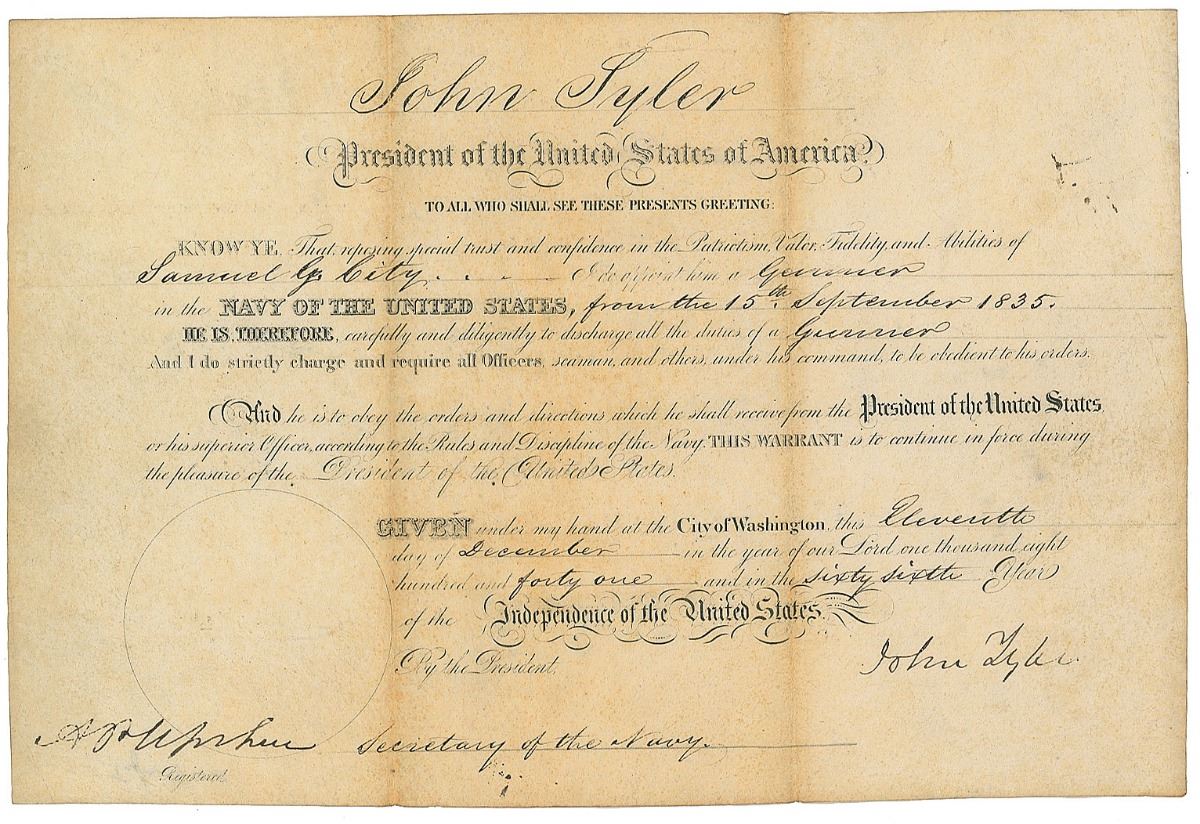 John Tyler
President of the United States of America.
TO ALL WHO SHALL SEE THESE PRESENTS GREETING:
KNOW YE, That reposing special trust and confidence in the Patriotism, Valor, Fidelity, and Abilities of
Samuel G. City. . . - I do appoint him a Gunner
in the NAVY OF THE UNITED STATES, from the 15th September 1835.
HE IS, THEREFORE, carefully and diligently to discharge all the duties of a Gunner
And I do strictly charge and require all Officers, seaman, and others, under his command, to be obedient to his orders.
And he is to obey the orders and directions which he shall receive from the President of the United States,
or his superior Officer, according to the Rules and Discipline of the Navy. THIS WARRANT is to continue in force during
the pleasure of the President of the United States.
GIVEN under my hand at the City of Washington, this Eleventh
day of December in the year of our Lord one thousand eight
hundred and forty one and in the sixty sixth Year
of the Independence of the United States.
By the President,
John Tyler
A P Upshur Secretary of the Navy.
Registered.